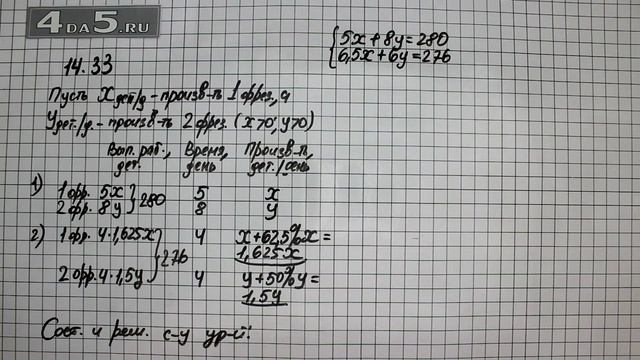 4DA5.RU
{5x+8y=280
6,5x+6y=276
14.33
Пусть x дет/д - произв-ть 1 фрез., а
y дет./д. - произв-ть 2 фрез. (x>0; y>0)
Вып. раб., дет. Время, день Произв-ть, дет./день
1) 1 фр. 5x } 280 5 x
2 фр. 8y 8 y
2) 1 фр. 4·1,625x } 276 4 x+62,5%x=
1,625x
2 фр. 4·1,5y 4 y+50%y=
1,5y
Сост. и реш. с-у ур-й!